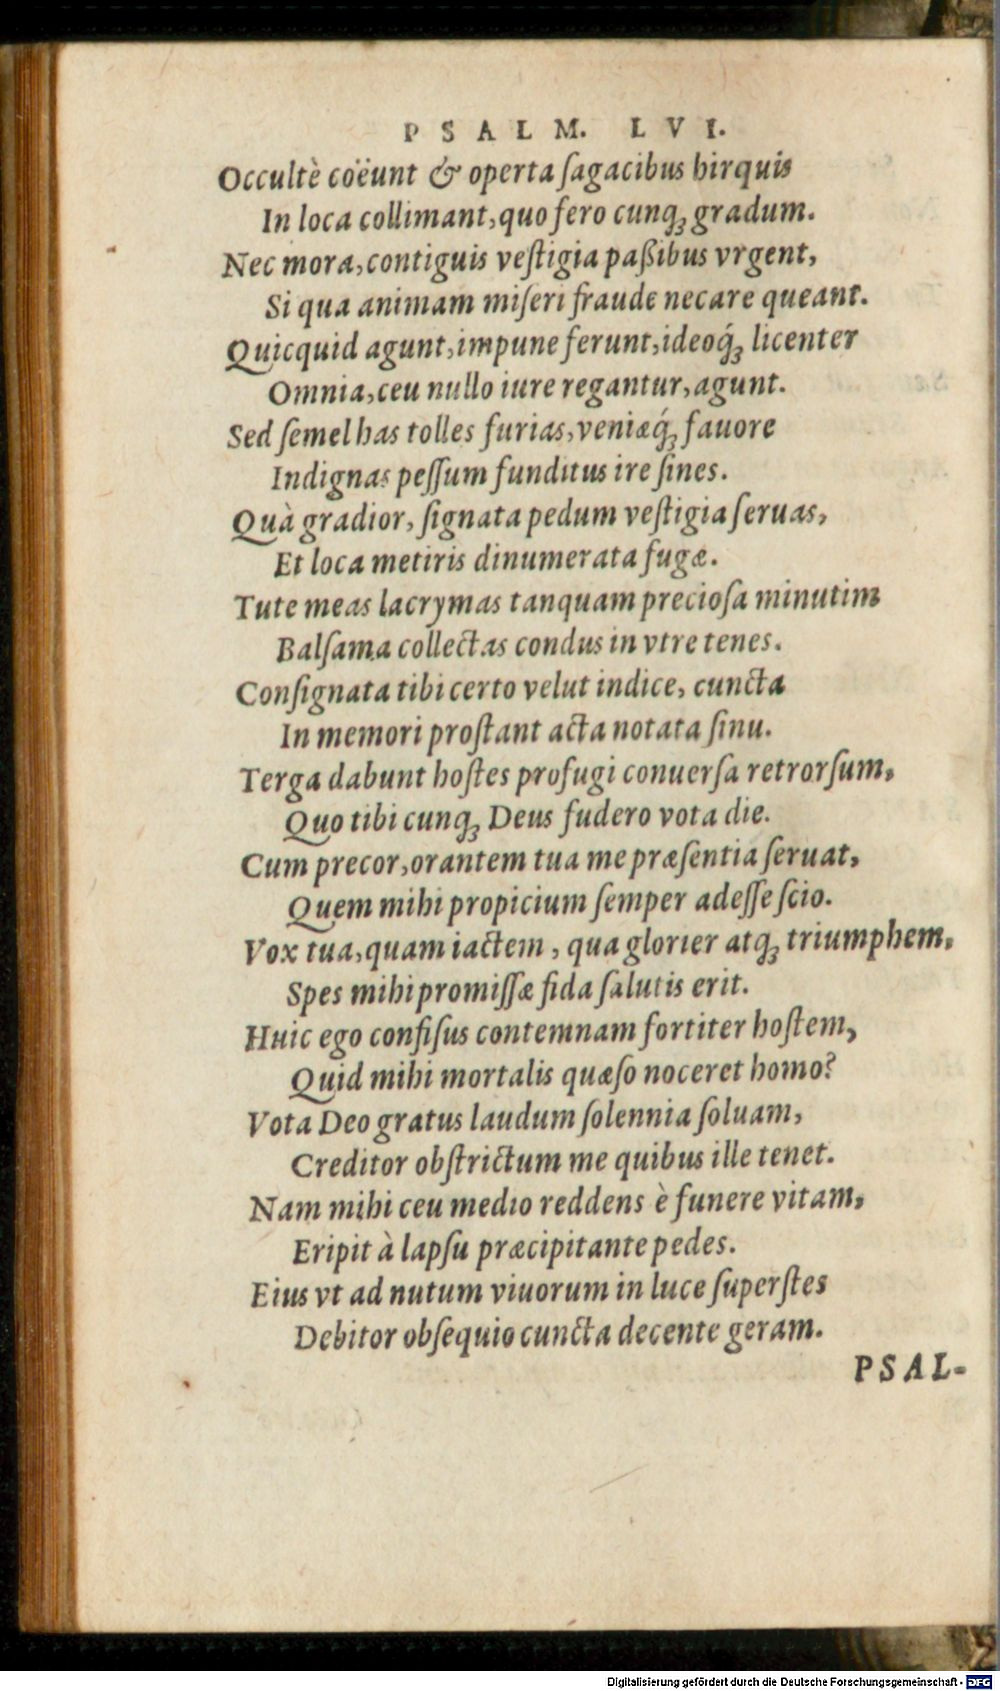 PSALM. LVI.
Occultè coëunt & operta ſagacibus hirquis
In loca collimant, quo fero cunq; gradum.
Nec mora, contiguis veſtigia paßibus vrgent,
Si qua animam miſeri fraude necare queant.
Quicquid agunt, impune ferunt, ideoq́; licenter
Omnia, ceu nullo iure regantur, agunt.
Sed ſemel has tolles furias, veniæq́; fauore
Indignas peſſum funditus ire ſines.
Quà gradior, ſignata pedum veſtigia ſeruas,
Et loca metiris dinumerata fugæ.
Tute meas lacrymas tanquam precioſa minutim
Balſama collectas condus in vtre tenes.
Conſignata tibi certo velut indice, cuncta
In memori proſtant acta notata ſinu.
Terga dabunt hoſtes profugi conuerſa retrorſum,
Quo tibi cunq; Deus fudero vota die.
Cum precor, orantem tua me præſentia ſeruat,
Quem mihi propicium ſemper adeſſe ſcio.
Vox tua, quam iactem, qua glorier atq; triumphem,
Spes mihi promiſſæ fida ſalutis erit.
Huic ego confiſus contemnam fortiter hoſtem,
Quid mihi mortalis quæſo noceret homo?
Vota Deo gratus laudum ſolennia ſoluam,
Creditor obſtrictum me quibus ille tenet.
Nam mihi ceu medio reddens è funere vitam,
Eripit à lapſu præcipitante pedes.
Eius vt ad nutum viuorum in luce ſuperſtes
Debitor obſequio cuncta decente geram.
PSAL-
Digitalisierung gefördert durch die Deutsche Forschungsgemeinschaft - DFG